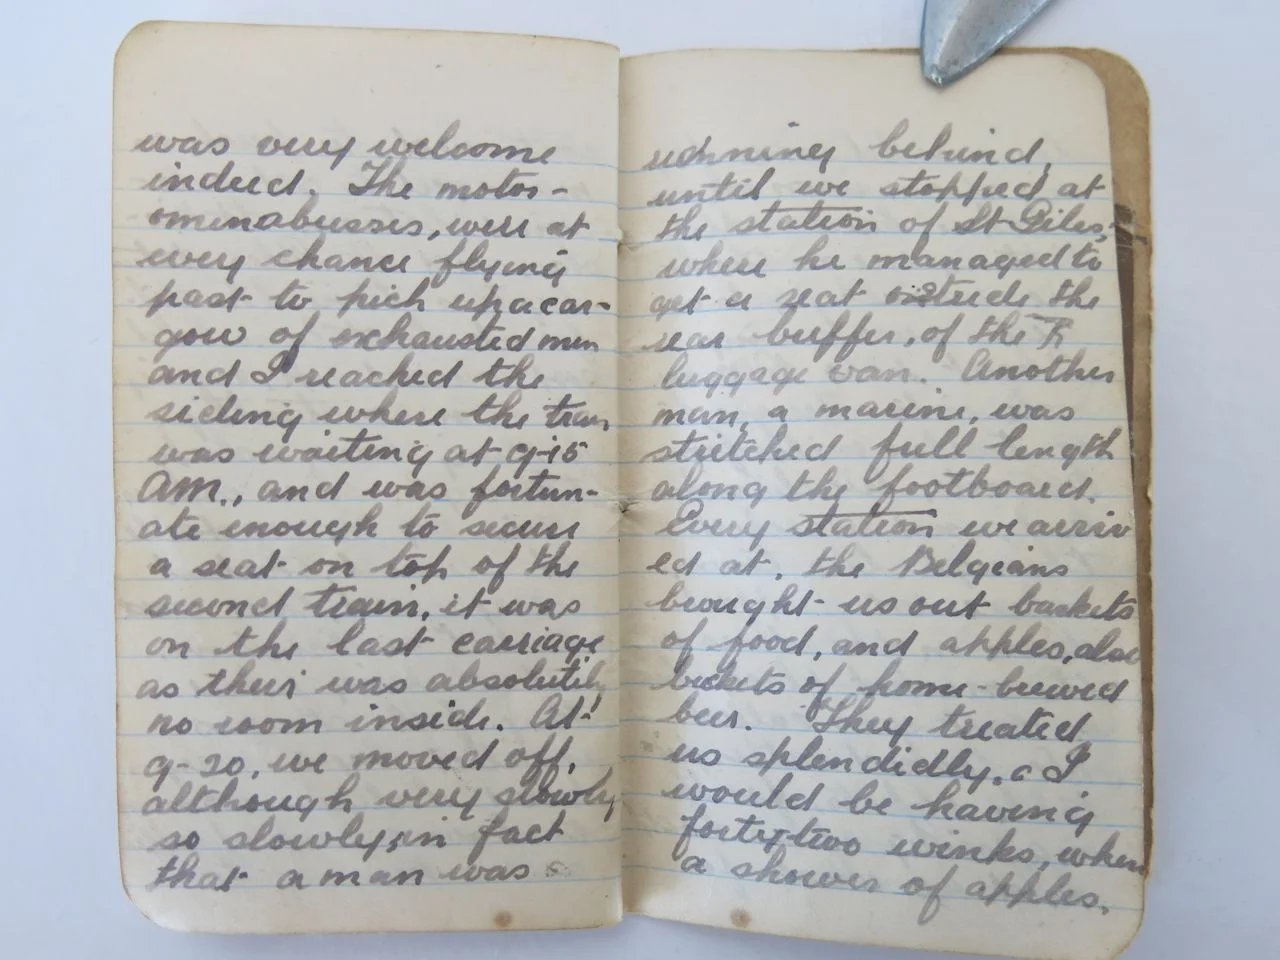 was very welcome
indeed. The motor-
ominabusses, were at
every chance flying
past to pick up a car-
gow of exchausted men
and I reached the
sideing where the train
was waiting at 9-15
AM., and was fortun-
ate enough to secure
a seat on top of the
second train, it was
on the last carriage
as their was absolutily
no room inside. At
9-20, we moved off,
although very slowly
so slowly, in fact
that a man was
running behind,
until we stopped at
the station of St Giles,
where he managed to
get a seat the
rear buffer, of the
luggage van. Another
man, a marine, was
stretched full length
along the footboard.
Every station we arriv
ed at, the Belgians
brought us out baskets
of food, and apples, also
buckets of home-brewed
beer. They treated
us splendidly. I
would be having
forty-two winks, when
a shower of apples.